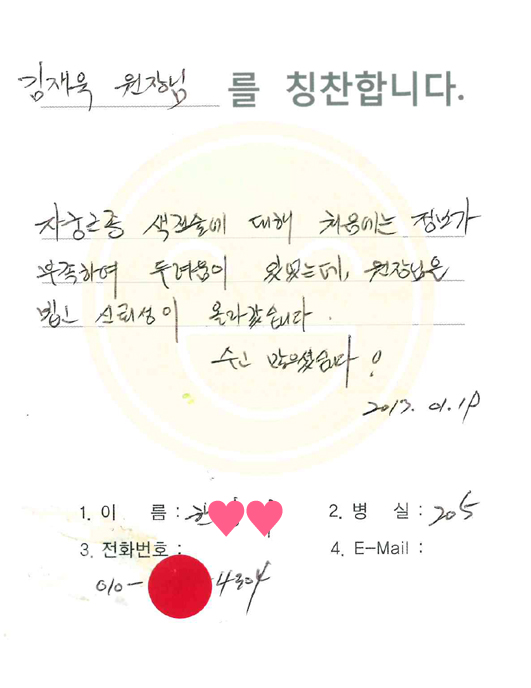 김재욱 원장님 를 칭찬합니다.
자궁근종 색전술에 대해 처음에는 정보가
부족하여 두려움이 있었는데, 원장님을
뵙고 신뢰성이 올라갔습니다.
수고 많으셨습니다!
2013. 01. 19
1. 이 름 : 한
2. 병 실 : 205
3. 전화번호 :
4. E-Mail :
010- 4304